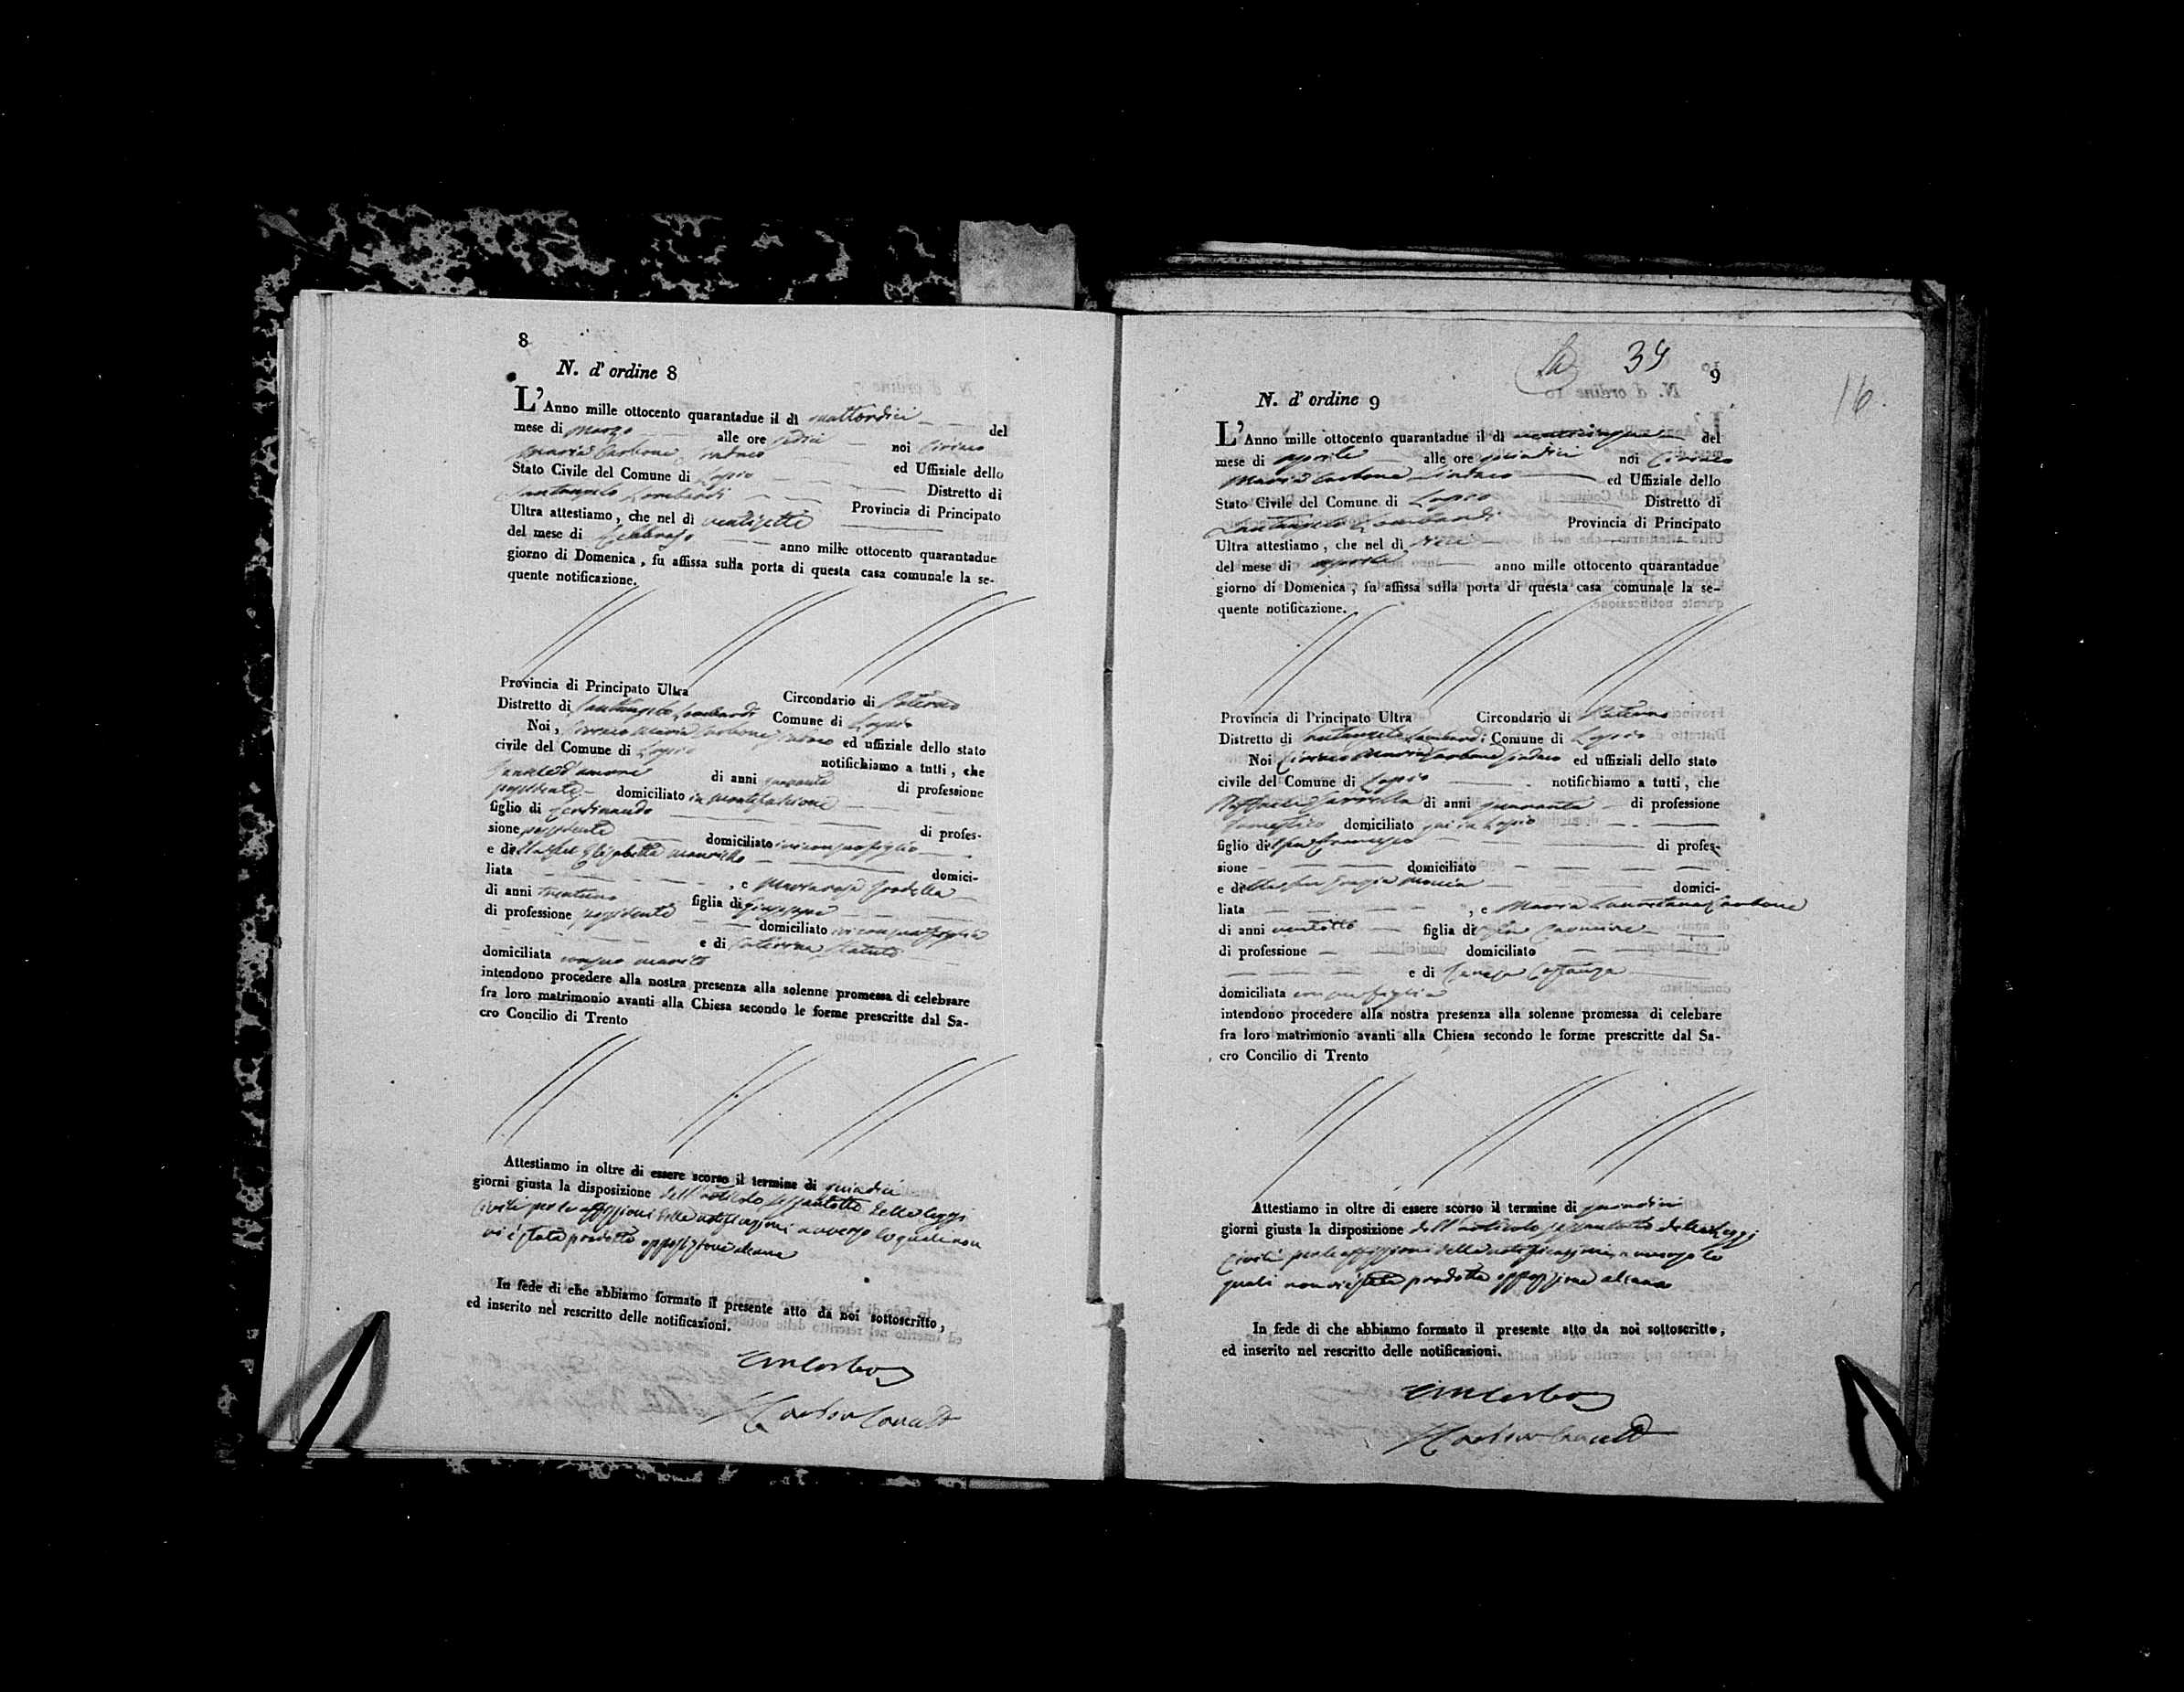 8
N. d' ordine 8
L'Anno mille ottocento quarantadue il dì quattordici del
mese di Marzo alle ore sedici noi Ciriaco
Maria Carbone Sindaco ed Uffiziale dello
Stato Civile del Comune di Lapio Distretto di
Santangelo Lombardi Provincia di Principato
Ultra attestiamo, che nel dì ventisette
del mese di Febbrajo anno mille ottocento quarantadue
giorno di Domenica, fu affissa sulla porta di questa casa comunale la se-
quente notificazione.
Provincia di Principato Ultra Circondario di Paterno
Distretto di Santangelo Lombardi Comune di Lapio
Noi, Ciriaco Maria Carbone Sindaco ed uffiziale dello stato
civile del Comune di Lapio notifichiamo a tutti, che
di anni quaranta di professione
possidente domiciliato in Montefalcione
figlio di Ferdinando di profes-
sione possidente domiciliato ivi con suo figlio
e di Elisabetta domici-
liata , e Mariarosa
di anni trentuno figlia di Giuseppe
di professione possidente domiciliato ivi con sua figlia
e di Caterina Statuto
domiciliata con suo marito
intendono procedere alla nostra presenza alla solenne promessa di celebrare
fra loro matrimonio avanti alla Chiesa secondo le forme prescritte dal Sa-
cro Concilio di Trento
Attestiamo in oltre di essere scorso il termine di quindici
giorni giusta la disposizione dell'articolo sessantotto delle leggi
Civili per le affissioni delle notificazioni avverso le quali non
vi è stata prodotta opposizione alcuna
In fede di che abbiamo formato il presente atto da noi sottoscritto,
ed inserito nel rescritto delle notificazioni.
39
9
16
N. d' ordine 9
L'Anno mille ottocento quarantadue il dì venticinque del
mese di aprile alle ore quindici noi Ciriaco
Maria Carbone Sindaco ed Uffiziale dello
Stato Civile del Comune di Lapio Distretto di
Santangelo Lombardi Provincia di Principato
Ultra attestiamo, che nel dì dieci
del mese di aprile anno mille ottocento quarantadue
giorno di Domenica, fu affissa sulla porta di questa casa comunale la se-
quente notificazione.
Provincia di Principato Ultra Circondario di Paterno
Distretto di Santangelo Lombardi Comune di Lapio
Noi Ciriaco Maria Carbone Sindaco ed uffiziali dello stato
civile del Comune di Lapio notifichiamo a tutti, che
Raffaele di anni quaranta di professione
domestico domiciliato qui in Lapio
figlio di Francesco di profes-
sione domiciliato
e di Grazia domici-
liata , e Maria Lauretana Carbone
di anni ventotto figlia di
di professione domiciliato
e di Teresa Costanza
domiciliata con sua figlia
intendono procedere alla nostra presenza alla solenne promessa di celebare
fra loro matrimonio avanti alla Chiesa secondo le forme prescritte dal Sa-
cro Concilio di Trento
Attestiamo in oltre di essere scorso il termine di quindici
giorni giusta la disposizione dell'articolo sessantotto delle Leggi
Civili per le affissioni delle notificazioni, avverso le
quali non vi è stata prodotta opposizione alcuna
In fede di che abbiamo formato il presente atto da noi sottoscritto,
ed inserito nel rescritto delle notificazioni.